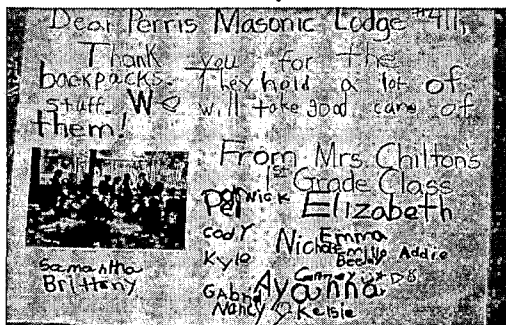 Dear Perris Masonic Lodge #411,
Thank you for the
backpacks. They hold a lot of
stuff. We will take good care of
them!
From Mrs. Chilton's
1st Grade Class
Nick Elizabeth
Cody Emma
Kyle Addie
Samantha
Brittany Ayanna
Nancy Kelsie